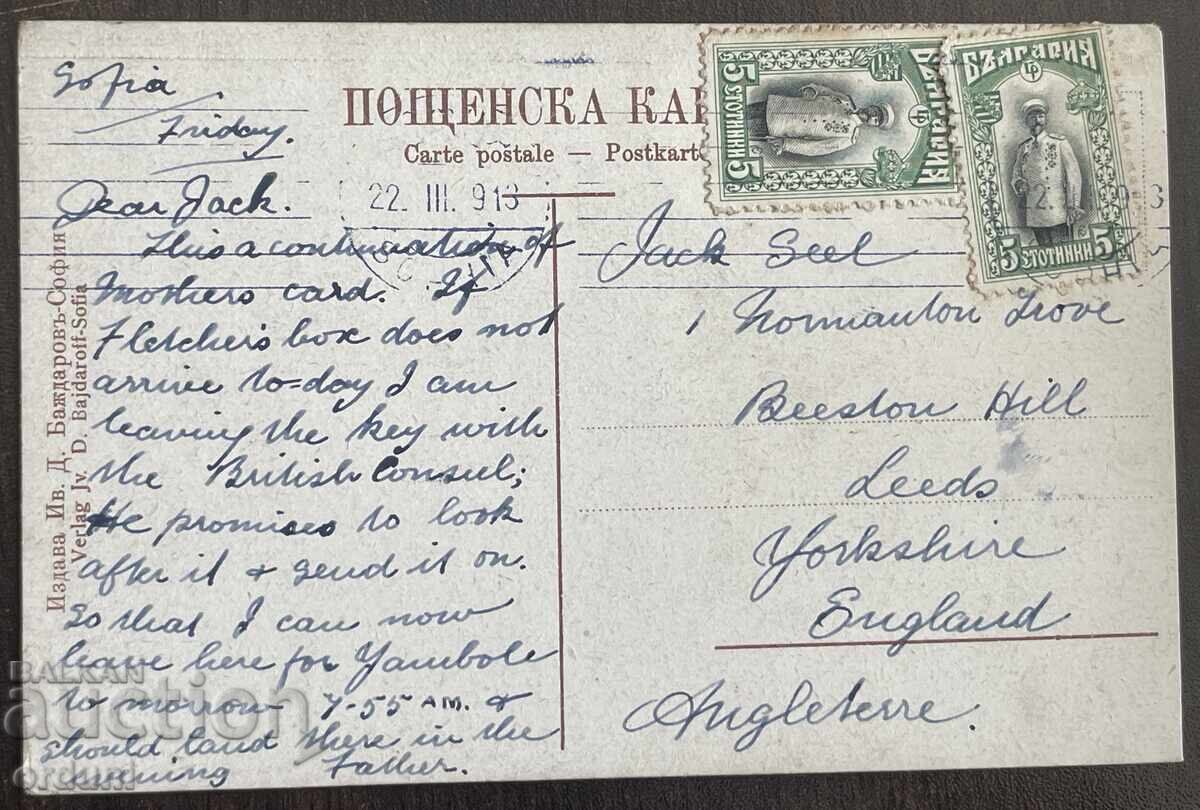 Sofia.
Friday.
Dear Jack.
This a continuation of
Mothers card. If
Fletchers box does not
arrive to=day I am
leaving the key with
the British Consul;
He promises to look
after it & send it on.
So that I can now
leave here for Yambole
to morrow 7-55 AM. &
should land there in the
evening Father.
ПОЩЕНСКА КАР
Carte postale — Postkarte
22. III. 913
Jack Seel
1 Normanton Grove
Beeston Hill
Leeds
Yorkshire
England
Angleterre.
БЪЛГАРИЯ
5 СТОТИНКИ 5
БЪЛГАРИЯ
5 СТОТИНКИ 5
Издава Ив. Д. Баждаровъ-София
Verlag Jv. D. Bajdaroff-Sofia
BALKAN
auction
orduni